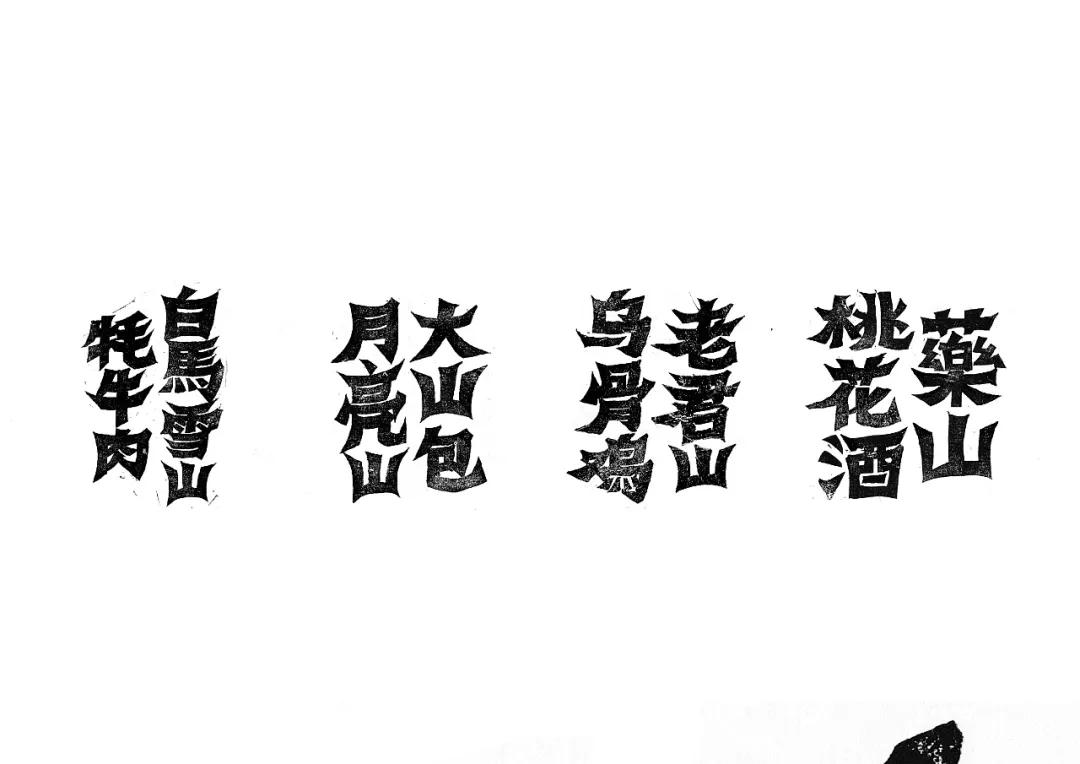 藥山
桃花酒
老君山
乌骨鸡
大山包
月亮山
白馬雪山
牦牛肉